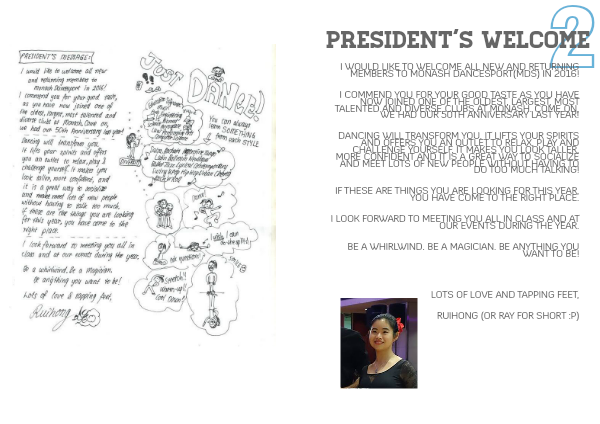 PRESIDENT'S MESSAGE:
I would like to welcome all new
and returning members to
Monash Dancesport in 2016!
I commend you for your good taste,
as you have now joined one of
the oldest, largest, most talented and
diverse clubs at Monash. Come on,
we had our 50th Anniversary last year!
Dancing will transform you.
It lifts your spirits and offers
you an outlet to relax, play &
challenge yourself. It makes you
look taller, more confident, and
it is a great way to socialize
and meet lots of new people
without having to talk too much.
If these are the things you are looking
for this year, you have come to the
right place.
I look forward to meeting you all in
class and at our events during the year.
Be a whirlwind. Be a magician.
Be anything you want to be!
Lots of love & tapping feet,
Ruihong
JUST DANCE!!
You can always
learn SOMETHING
from each STYLE
2
PRESIDENT'S WELCOME
I WOULD LIKE TO WELCOME ALL NEW AND RETURNING
MEMBERS TO MONASH DANCESPORT(MDS) IN 2016!
I COMMEND YOU FOR YOUR GOOD TASTE AS YOU HAVE
NOW JOINED ONE OF THE OLDEST, LARGEST, MOST
TALENTED AND DIVERSE CLUBS AT MONASH. COME ON,
WE HAD OUR 50TH ANNIVERSARY LAST YEAR!
DANCING WILL TRANSFORM YOU. IT LIFTS YOUR SPIRITS
AND OFFERS YOU AN OUTLET TO RELAX, PLAY AND
CHALLENGE YOURSELF. IT MAKES YOU LOOK TALLER,
MORE CONFIDENT AND IT IS A GREAT WAY TO SOCIALIZE
AND MEET LOTS OF NEW PEOPLE WITHOUT HAVING TO
DO TOO MUCH TALKING!
IF THESE ARE THINGS YOU ARE LOOKING FOR THIS YEAR,
YOU HAVE COME TO THE RIGHT PLACE.
I LOOK FORWARD TO MEETING YOU ALL IN CLASS AND AT
OUR EVENTS DURING THE YEAR.
BE A WHIRLWIND. BE A MAGICIAN. BE ANYTHING YOU
WANT TO BE!
LOTS OF LOVE AND TAPPING FEET,
RUIHONG (OR RAY FOR SHORT :P)